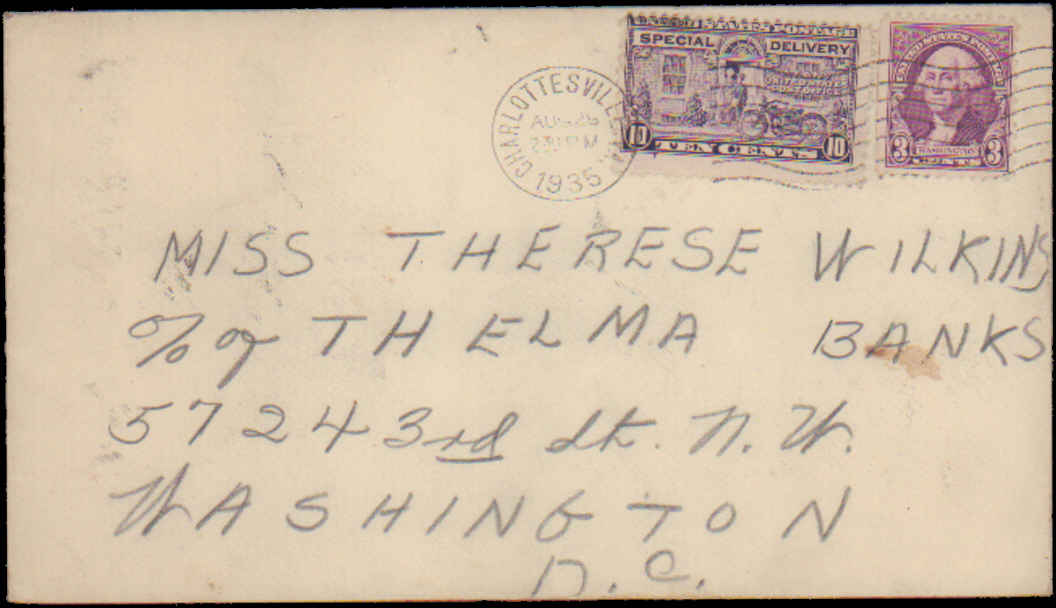 UNITED STATES POSTAGE
SPECIAL DELIVERY
UNITED STATES
POST OFFICE
10 TEN CENTS 10
WASHINGTON
3 CENTS 3
CHARLOTTESVILLE, VA.
AUG 26
2 30 PM
1935
MISS THERESE WILKINS
c/o of THELMA BANKS
5724 3rd St. N. W.
WASHINGTON
D. C.